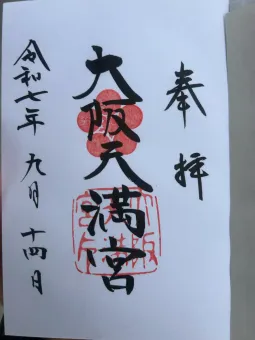 奉拝
大阪天満宮
令和七年 九月 十四日